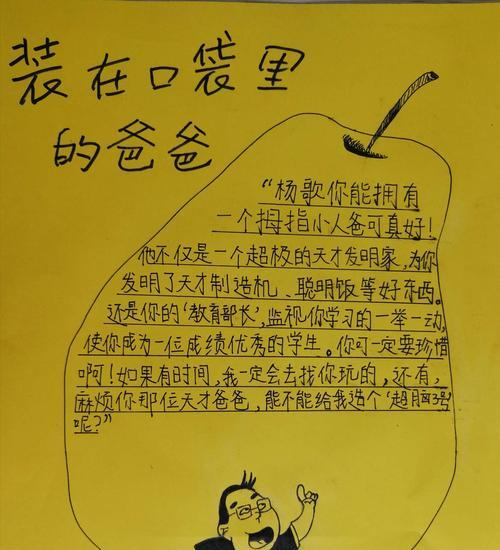 装在口袋里
的爸爸
“杨歌你能拥有
一个拇指小人爸可真好！
他不仅是一个超极的天才发明家，为你
发明了天才制造机、聪明饭等好东西。
还是你的‘教育部长’，监视你学习的一举一动，
使你成为一位成绩优秀的学生。你可一定要珍惜
啊！如果有时间，我一定会去找你玩的，还有，
麻烦你那位天才爸爸，能不能给我造个‘超脑3号’
呢？”